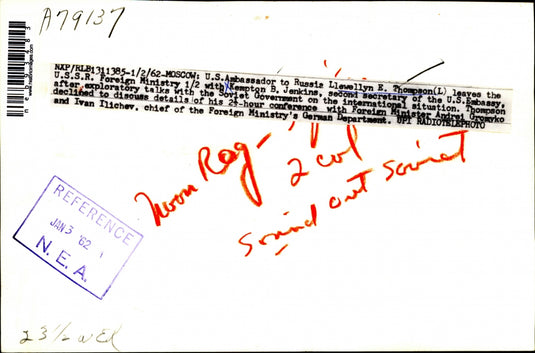 A79137
NXP/RLB1311385-1/2/62-MOSCOW: U.S.Ambassador to Russia Llewellyn E. Thompson(L) leaves the
U.S.S.R. Foreign Ministry 1/2 with Kempton B. Jenkins, second secretary of the U.S.Embassy,
after exploratory talks with the Soviet Government on the international situation. Thompson
declined to discuss details of his 2½-hour conference with Foreign Minister Andrei Gromyko
and Ivan Ilichev, chief of the Foreign Ministry's German Department. UPI RADIOTELEPHOTO
noon Rag-
2 col
sound out soviet
REFERENCE
JAN 3 '62
N. E. A.
23½